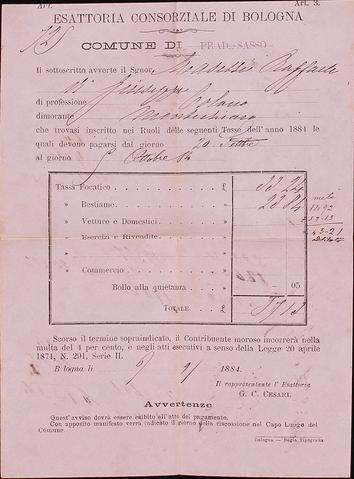 Art. 3.
ESATTORIA CONSORZIALE DI BOLOGNA
COMUNE DI PRAD.-SASSO
Il sottoscritto avverte il Signor Raffaele
di Giuseppe
di professione Colono
dimorante
che trovasi inscritto nei Ruoli delle seguenti Tasse dell'anno 1884 le
quali devono pagarsi dal giorno 20
al giorno Ottobre 84
Tassa Focatico £ 33 24
» Bestiame. 23 84
» Vetture e Domestici.
» Esercizi e Rivendite.
»
» Commercio
Bollo alla quietanza 05
TOTALE. £ 57 13
metà
11-92
57-13
43-21
Scorso il termine sopraindicato, il Contribuente moroso incorrerà nella
multa del 4 per cento, e negli atti esecutivi a senso della Legge 20 aprile
1871, N. 291, Serie II.
Bologna li 9/ 1884.
Il rappresentante l'Esattoria
G. C. CESARI.
Avvertenze
Quest'avviso dovrà essere esibito all'atto del pagamento.
Con apposito manifesto verrà indicato il giorno della riscossione nel Capo Luogo del
Comune.
Bologna - Regia Tipografia